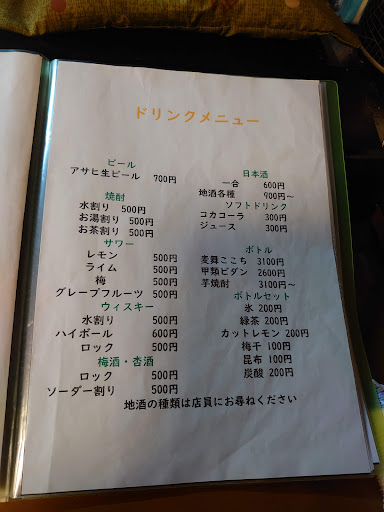 ドリンクメニュー
ビール
アサヒ生ビール 700円
焼酎
水割り 500円
お湯割り 500円
お茶割り 500円
サワー
レモン 500円
ライム 500円
梅 500円
グレープフルーツ 500円
ウィスキー
水割り 500円
ハイボール 600円
ロック 500円
梅酒・杏酒
ロック 500円
ソーダー割り 500円
日本酒
一合 600円
地酒各種 700円~
ソフトドリンク
コカコーラ 300円
ジュース 300円
ボトル
麦舞ここち 3100円
甲類ビダン 2600円
芋焼酎 3100円~
ボトルセット
氷 200円
緑茶 200円
カットレモン 200円
梅干 100円
昆布 100円
炭酸 200円
地酒の種類は店員にお尋ねください